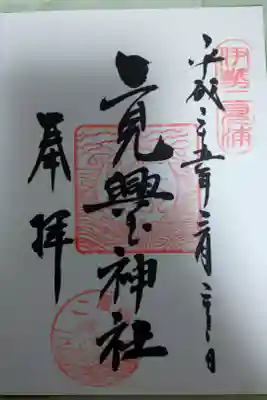 伊勢二見浦
平成二十五年三月二十一日
二見興玉神社
奉拝